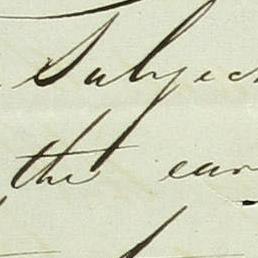 Subjec
the ear